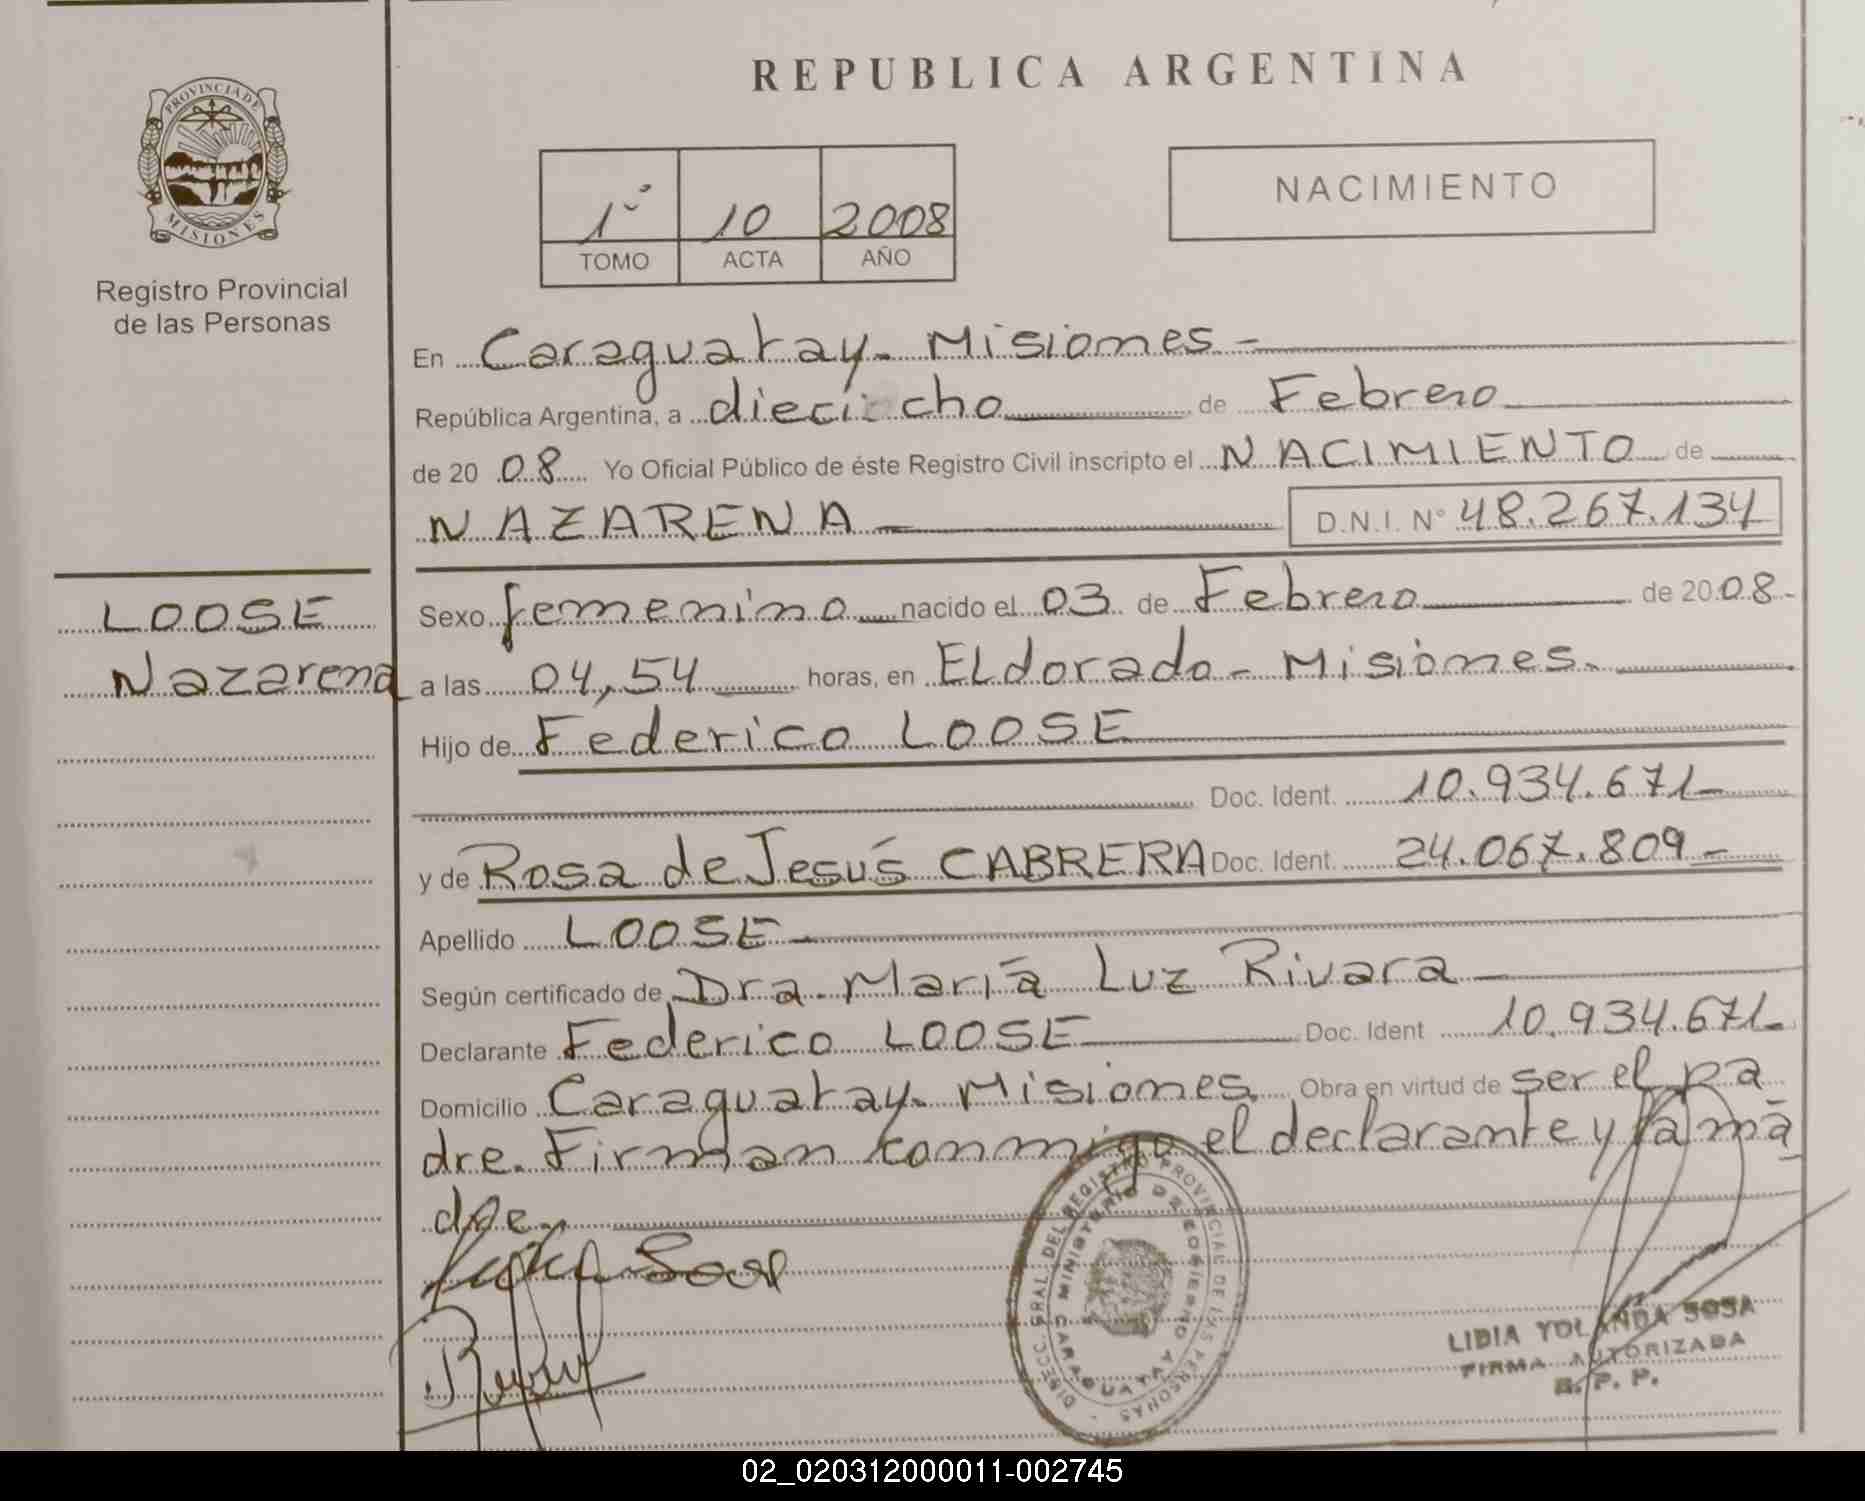 REPUBLICA ARGENTINA
PROVINCIA DE
MISIONES
Registro Provincial
de las Personas
1º 10 2008
TOMO ACTA AÑO
NACIMIENTO
En Caraguatay. Misiones -
República Argentina, a dieciocho de Febrero
de 20 08 Yo Oficial Público de éste Registro Civil inscripto el NACIMIENTO de
NAZARENA D.N.I. Nº 48.267.134
LOOSE
Nazarena
Sexo femenino nacido el 03 de Febrero de 20 08-
a las 04,54 horas, en ELdorado - Misiones.
Hijo de Federico LOOSE
Doc. Ident. 10.934.671-
y de Rosa de Jesús CABRERA Doc. Ident. 24.067.809-
Apellido LOOSE
Según certificado de Dra. María Luz Rivara
Declarante Federico LOOSE Doc. Ident 10.934.671-
Domicilio Caraguatay. Misiones. Obra en virtud de ser el pa
dre. Firman conmigo el declarante y la ma
dre.
DIRECC. GRAL. DEL REGISTRO PROVINCIAL DE LAS PERSONAS
MINISTERIO DE GOBIERNO
CARAGUATAY
LIDIA YOLANDA SOSA
FIRMA AUTORIZADA
R. P. P.
02_020312000011-002745